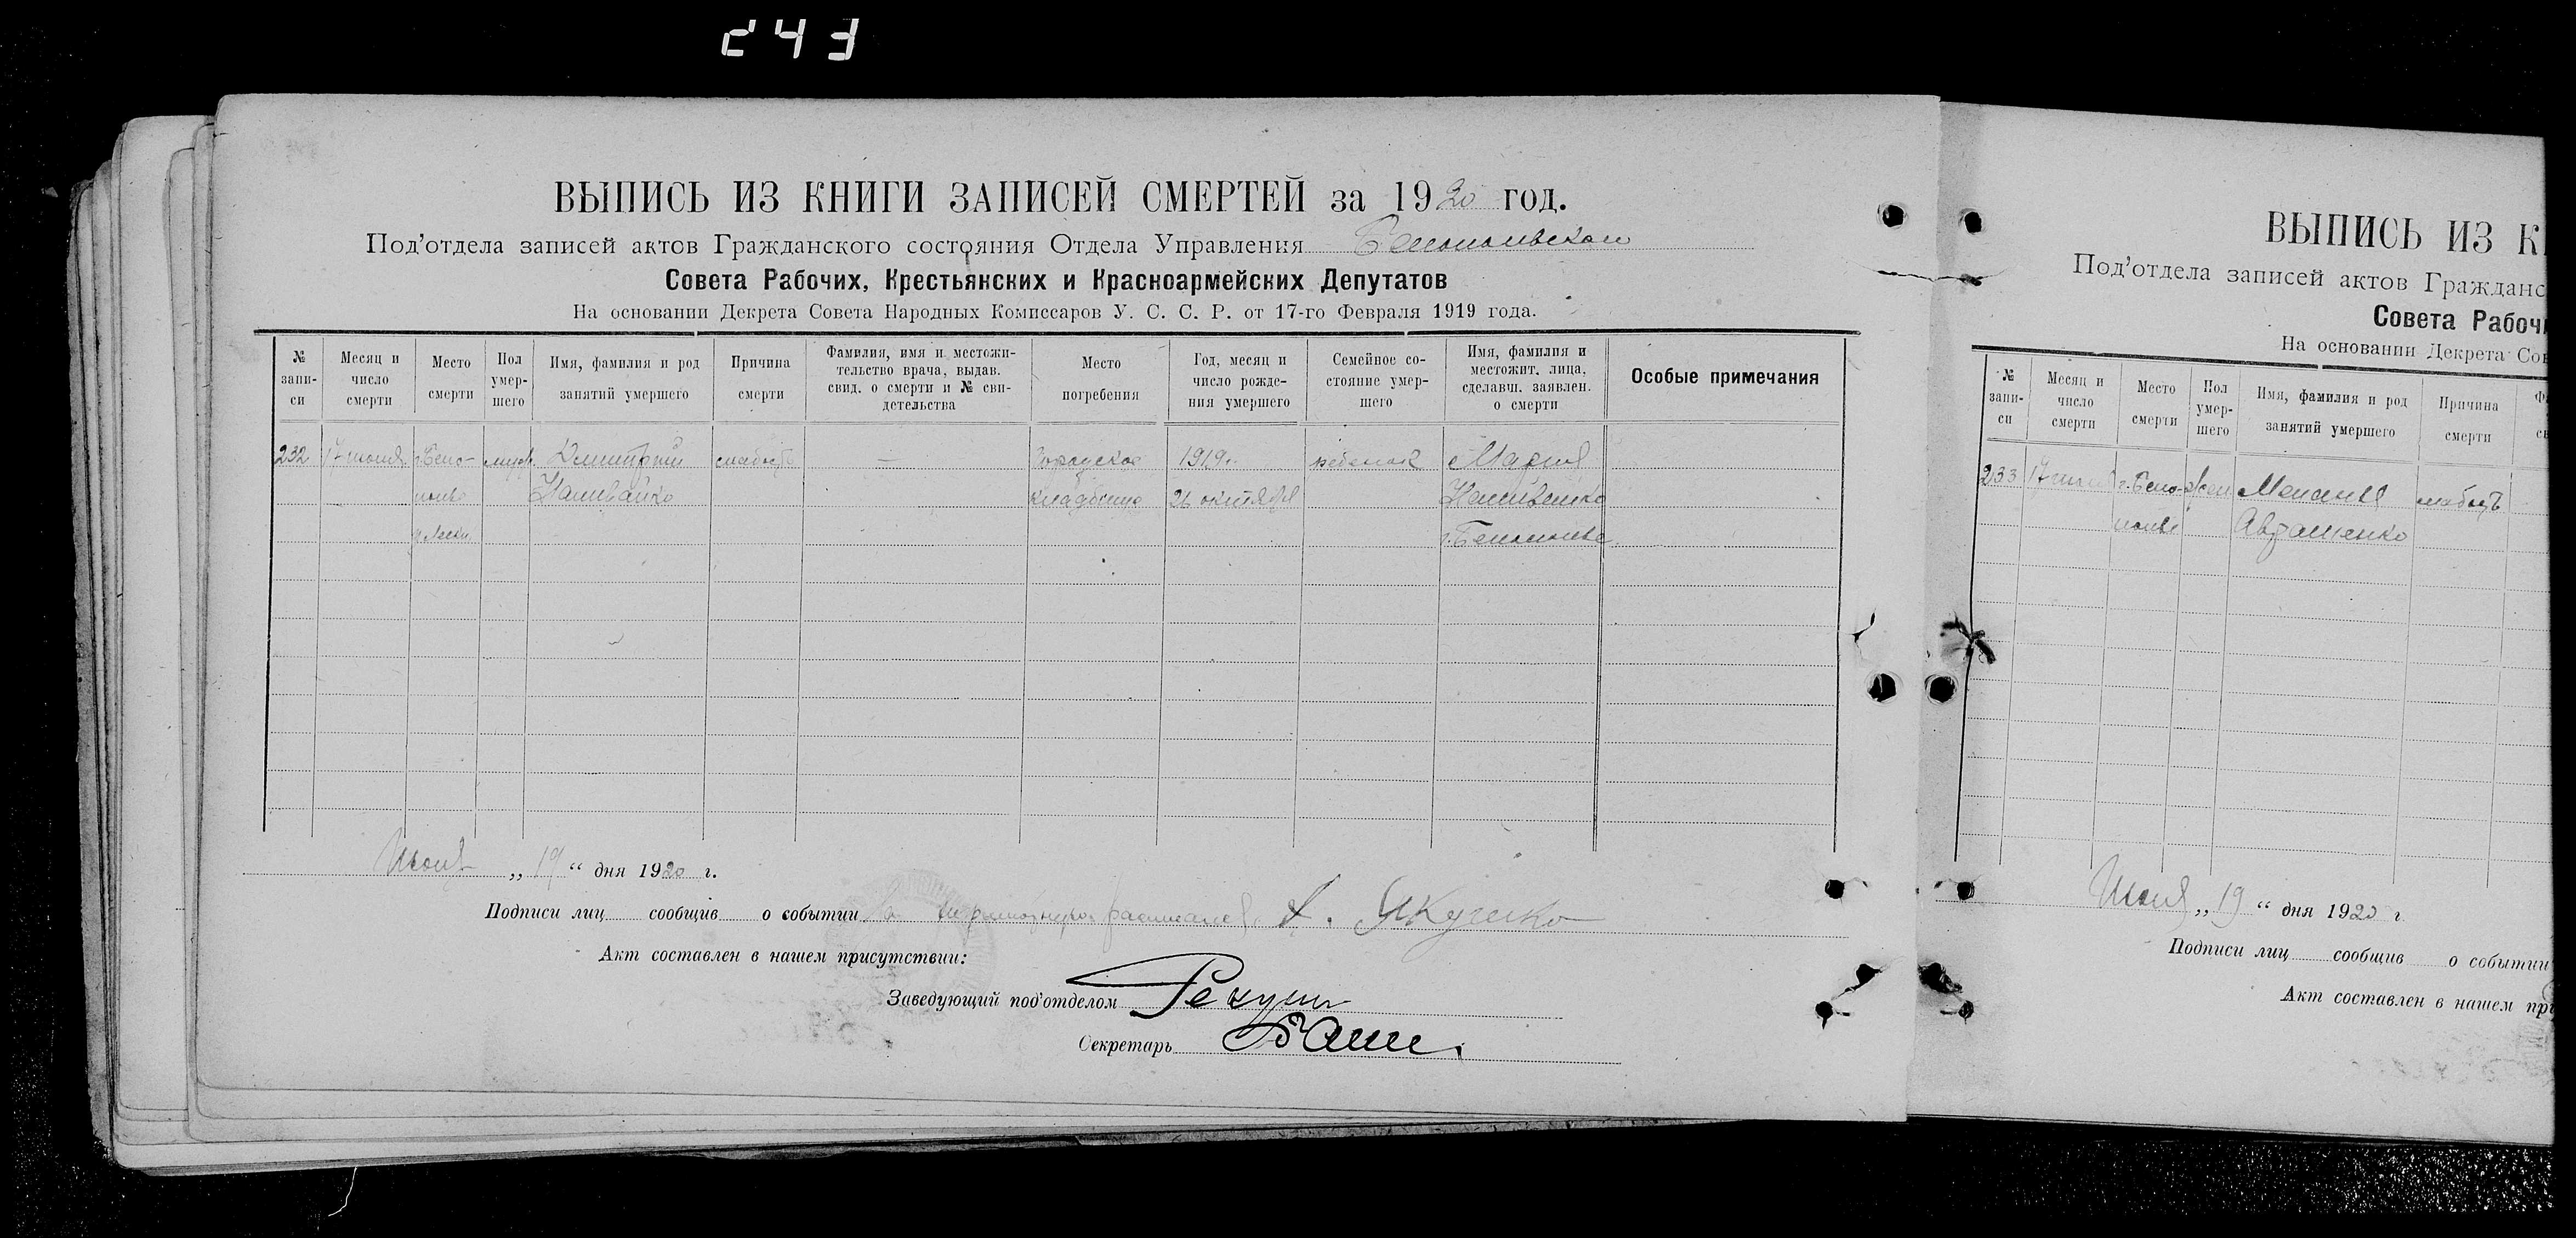 243
ВЫПИСЬ ИЗ КНИГИ ЗАПИСЕЙ СМЕРТЕЙ за 1920 год.
Под'отдела записей актов Гражданского состояния Отдела Управления
Совета Рабочих, Крестьянских и Красноармейских Депутатов
На основании Декрета Совета Народных Комиссаров У. С. С. Р. от 17-го Февраля 1919 года.
№ запи-си
Месяц и число смерти
Место смерти
Пол умер-шего
Имя, фамилия и род занятий умершего
Причина смерти
Фамилия, имя и местожи-тельство врача, выдав. свид. о смерти и № сви-детельства
Место погребения
Год, месяц и число рожде-ния умершего
Семейное со-стояние умер-шего
Имя, фамилия и местожит. лица, сделавш. заявлен. о смерти
Особые примечания
232 17 июня муж. Димитрий слабость — Городское 1919 г. ребенок Мария
Наливайко кладбище 26 октября Наливайко
Июня „ 19 “ дня 1920 г.
Подписи лиц сообщив о событии
Акт составлен в нашем присутствии:
Заведующий под'отделом
Секретарь
ВЫПИСЬ ИЗ К
Под'отдела записей актов Гражданс
Совета Рабоч
На основании Декрета Сов
№ запи-си
Месяц и число смерти
Место смерти
Пол умер-шего
Имя, фамилия и род занятий умершего
Причина смерти
233 17 июня Жен Мелания слабость
Авраменко
Июня „ 19 “ дня 1920 г.
Подписи лиц сообщив о событии
Акт составлен в нашем пр